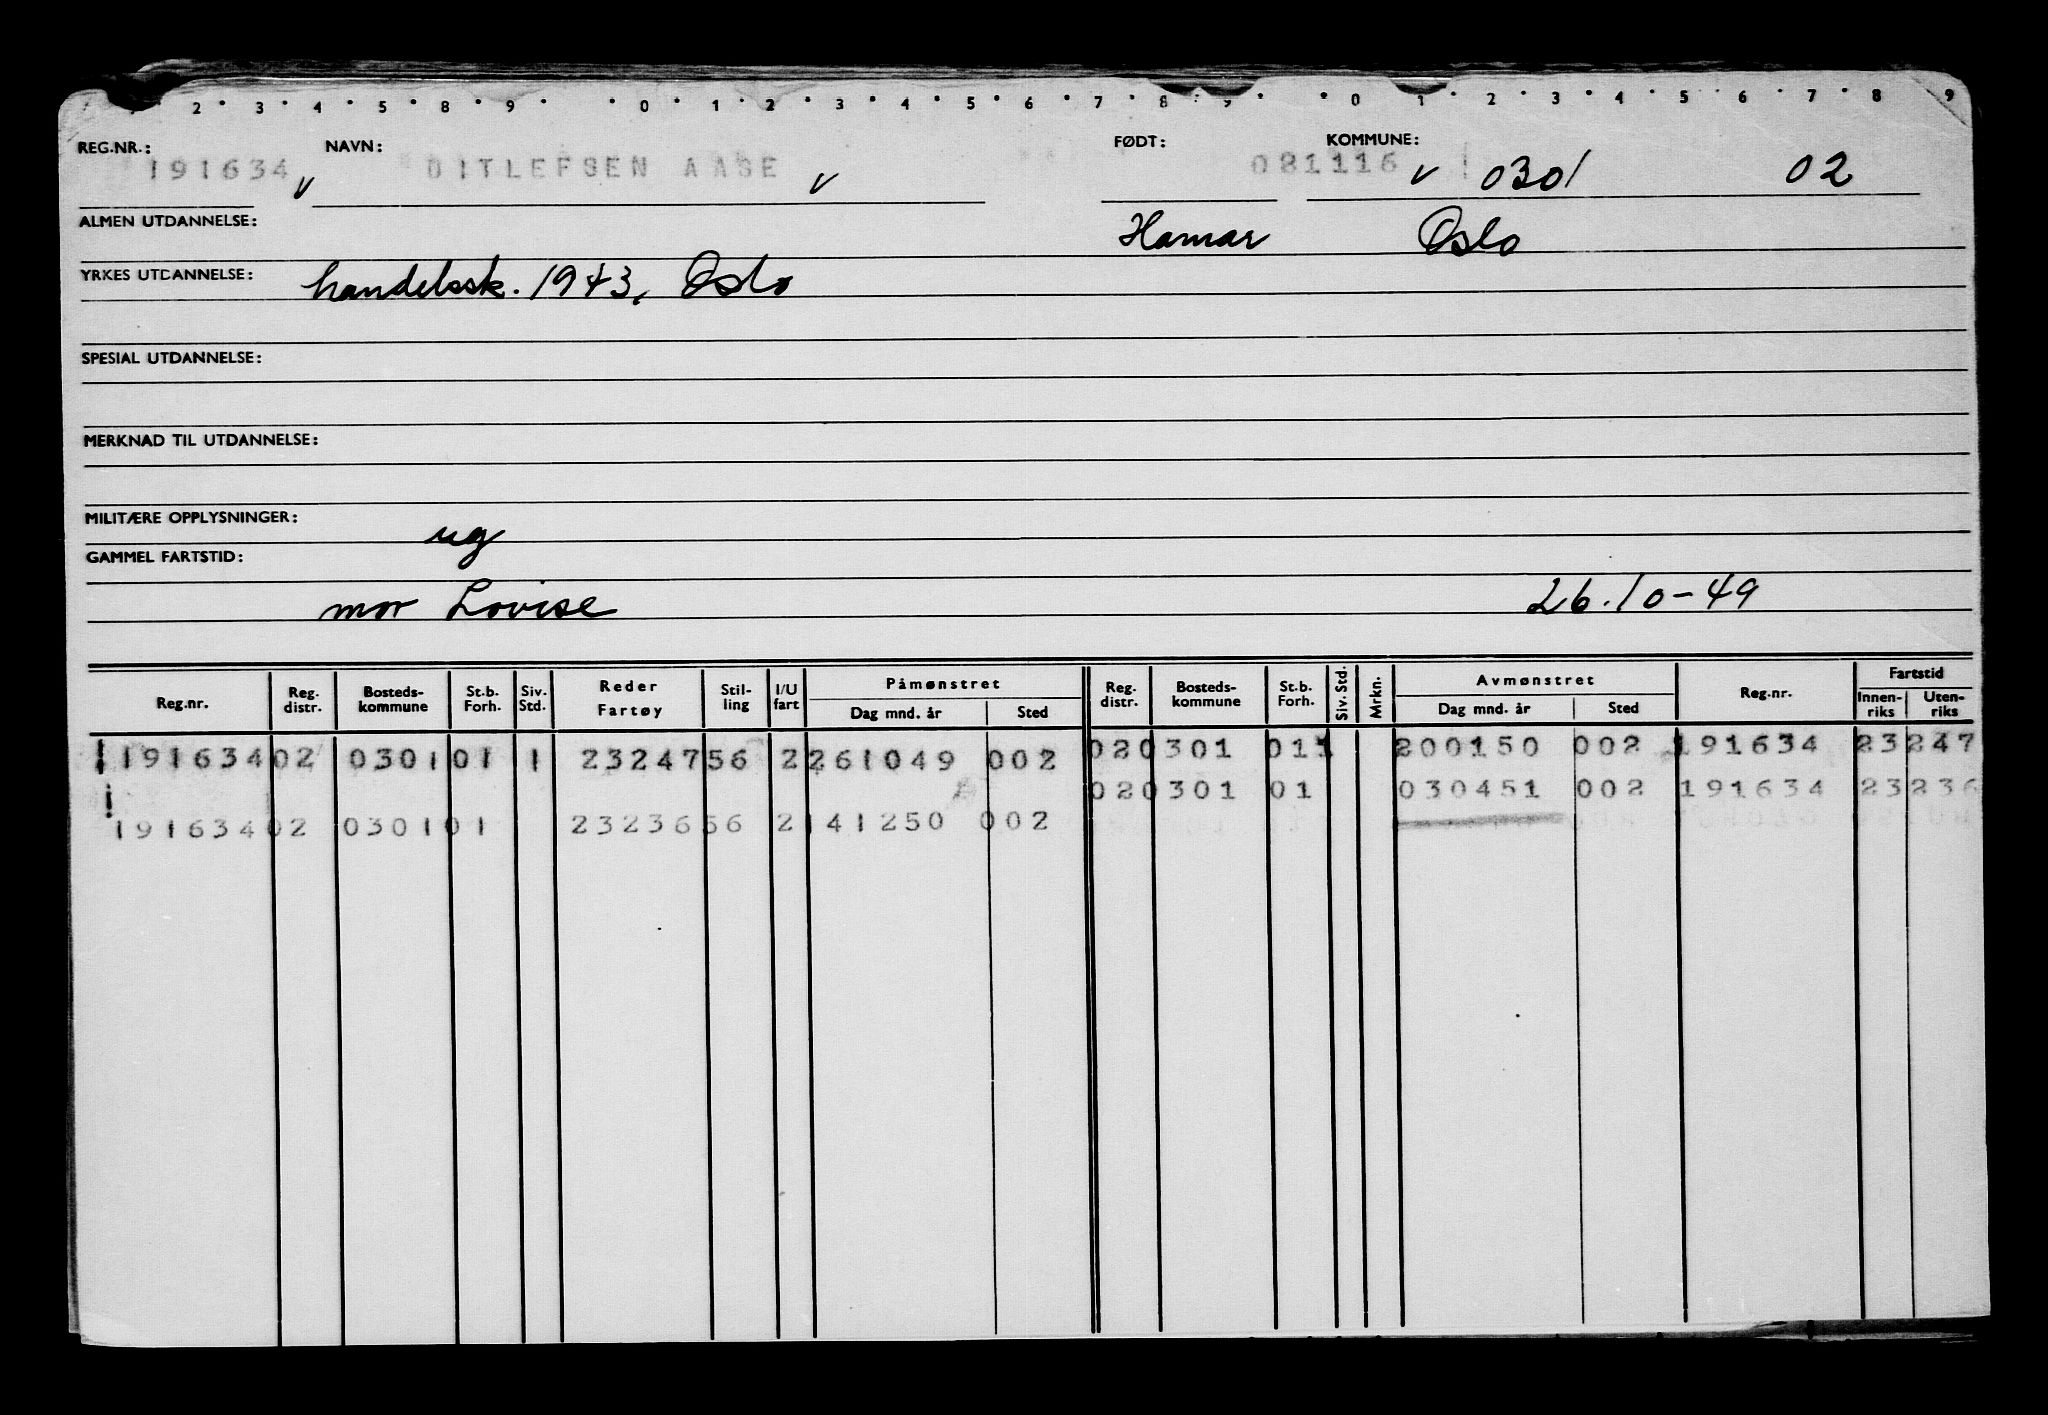 1 2 3 4 5 8 9 0 1 2 3 4 5 6 7 8 9 0 1 2 3 4 5 6 7 8 9
REG.NR.: NAVN: FØDT: KOMMUNE:
191634 v DITLEFSEN AASE v 081116 v 0301 02
ALMEN UTDANNELSE: Hamar Oslo
YRKES UTDANNELSE: handelssk. 1943, Oslo
SPESIAL UTDANNELSE:
MERKNAD TIL UTDANNELSE:
MILITÆRE OPPLYSNINGER: ug
GAMMEL FARTSTID:
mor Lovise 26.10-49
Reg.nr. Reg. distr. Bosteds-kommune St.b. Forh. Siv. Std. Reder Fartøy Stil-ling I/U fart Påmønstret Dag mnd. år Sted Reg. distr. Bosteds-kommune St.b. Forh. Siv. Std. Mrkn. Avmønstret Dag mnd. år Sted Reg.nr. Fartstid Innen-riks Uten-riks
191634 02 0301 01 1 23247 56 2 261049 002 02 0301 01 1 200150 002 191634 23 247
02 0301 01 030451 002 191634 23 236
191634 02 0301 01 23236 56 2 141250 002